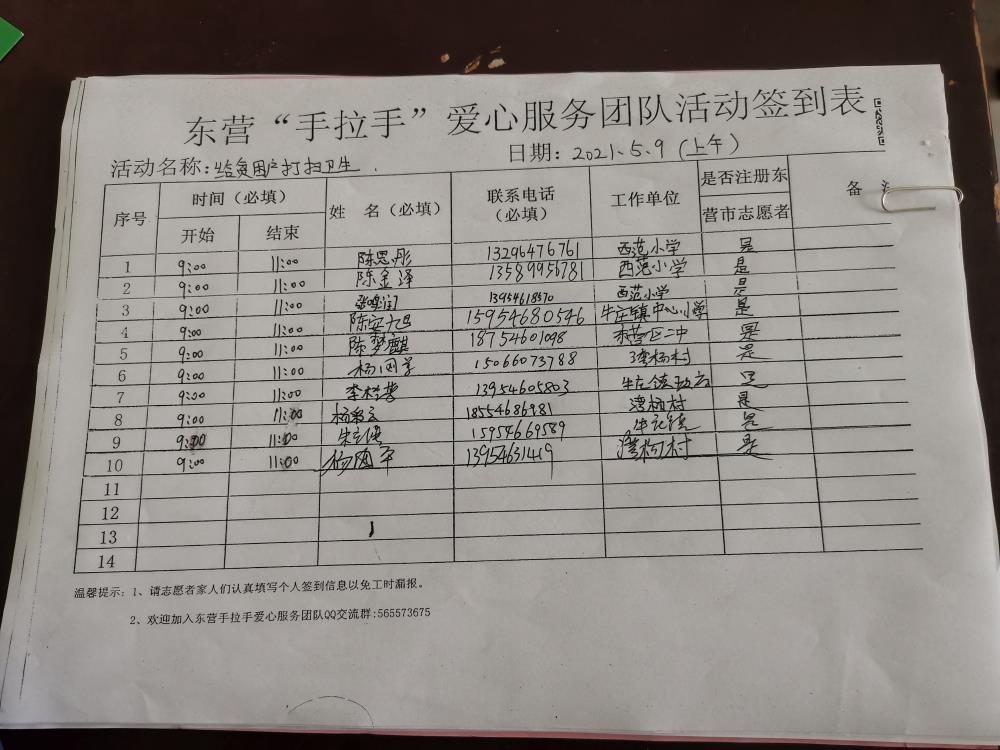 东营“手拉手”爱心服务团队活动签到表
活动名称：给贫困户打扫卫生 日期：2021.5.9（上午）
序号 时间（必填） 姓 名（必填） 联系电话（必填） 工作单位 是否注册东营市志愿者 备
开始 结束
1 9:00 11:00 陈思彤 13296476761 西范小学 是
2 9:00 11:00 陈金泽 13589956781 西范小学 是
3 9:00 11:00 13954618570 西范小学 是
4 9:00 11:00 15954680546 牛庄镇中心小学 是
5 9:00 11:00 陈梦麒 18754601098 东营区二中 是
6 9:00 11:00 15066073788 是
7 9:00 11:00 13954605803 是
8 9:00 11:00 18554686981 是
9 9:00 11:00 15954669589 是
10 9:00 11:00 13954631419 是
11
12
13
14
温馨提示：1、请志愿者家人们认真填写个人签到信息以免工时漏报。
2、欢迎加入东营手拉手爱心服务团队QQ交流群:565573675